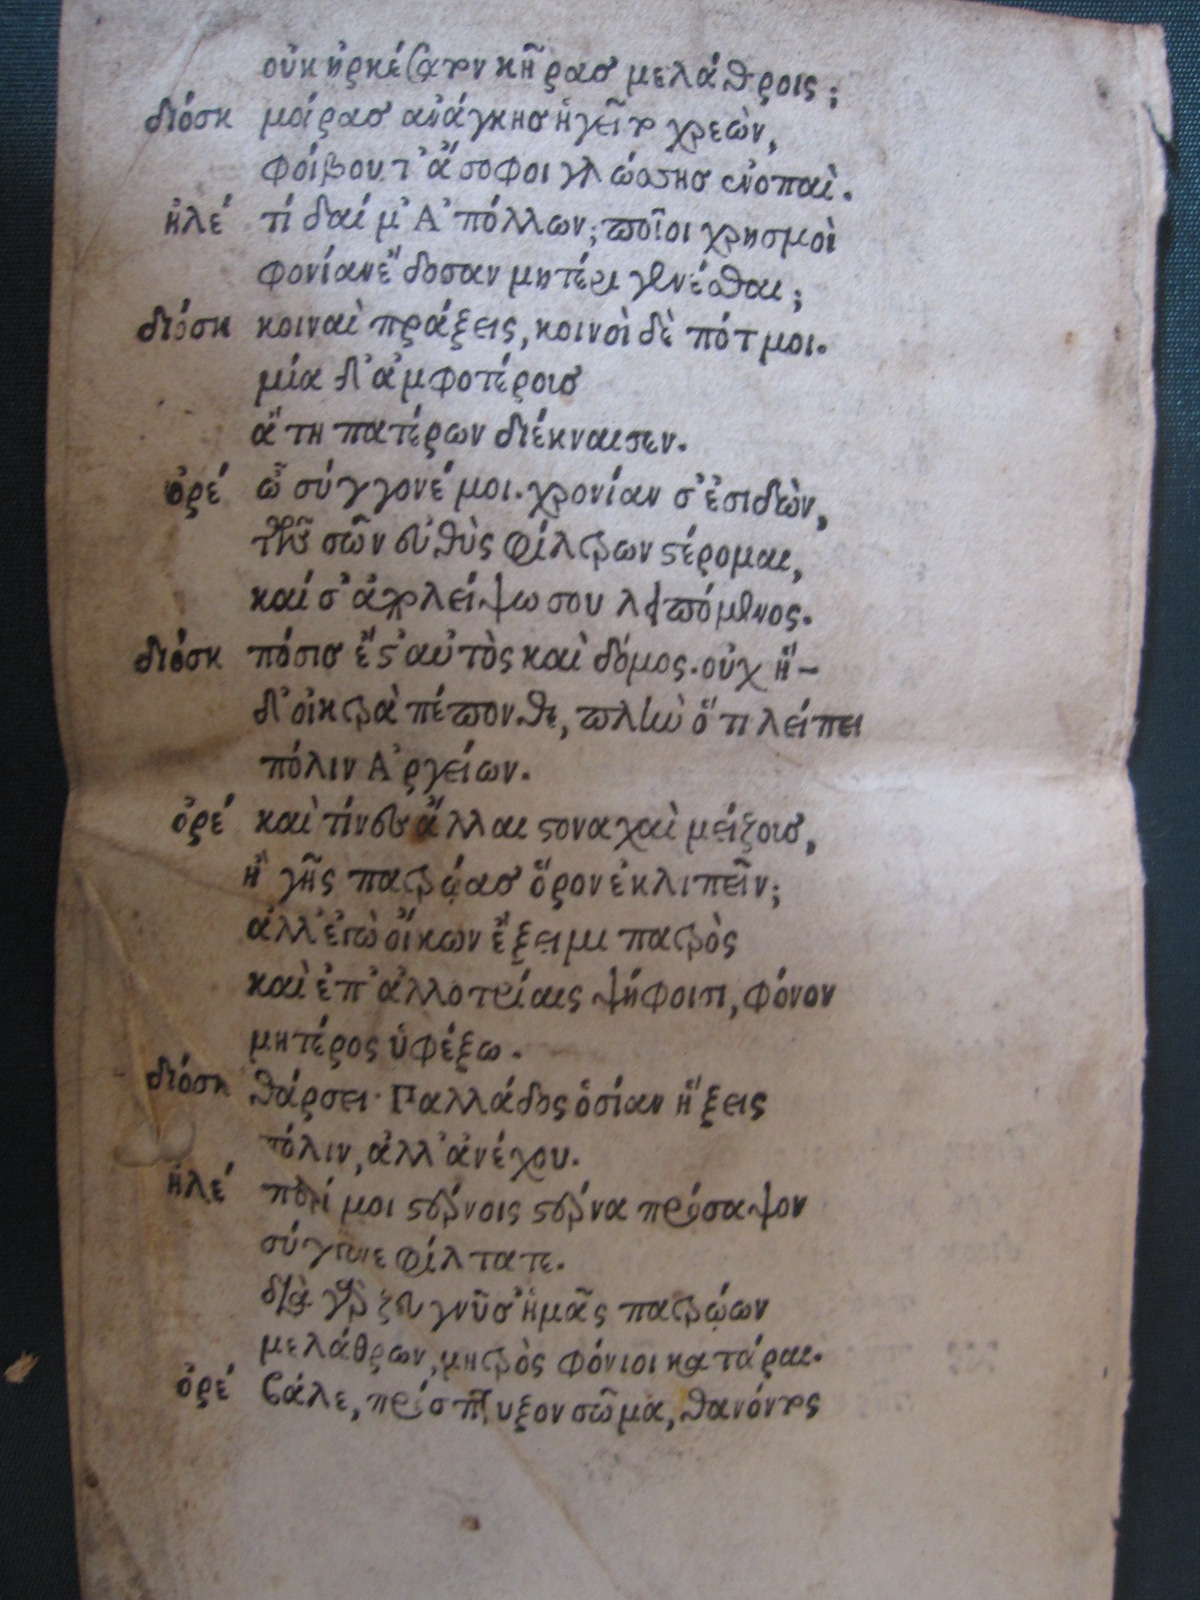 οὐκ ἠρκέσατην κῆρας μελάθροις;
διόσκ μοίρας ἀνάγκης ἡγεῖτο χρεὼν,
φοίβου τ' ἄσοφοι γλώσσης ἐνοπαί.
ἠλέ τί δαί μ' Ἀπόλλων; ποῖοι χρησμοὶ
φονίαν ἔδοσαν μητέρι γενέσθαι;
διόσκ κοιναὶ πράξεις, κοινοὶ δὲ πότμοι.
μία δ' ἀμφοτέροις
ἄτη πατέρων διέκναισεν.
ὀρέ ὦ σύγγονέ μοι. χρονίαν σ' ἐσιδὼν,
τῶν σῶν εὐθὺς φίλτρων στέρομαι,
καί σ' ἀπολείψω σου λειπόμενος.
διόσκ πόσις ἔστ' αὐτὸς καὶ δόμος. οὐχ ἥ-
δ' οἰκτρὰ πέπονθε, πλὴν ὅτι λείπει
πόλιν Ἀργείων.
ὀρέ καὶ τίνες ἄλλαι στοναχαὶ μείζους,
ἢ γῆς πατρῴας ὅρον ἐκλιπεῖν;
ἀλλ' ἐγὼ οἴκων ἔξειμι πατρὸς
καὶ ἐπ' ἀλλοτρίαις ψήφοισι, φόνον
μητέρος ὑφέξω.
διόσκ θάρσει· Παλλάδος ὁσίαν ἥξεις
πόλιν, ἀλλ' ἀνέχου.
ἠλέ περί μοι στέρνοις στέρνα πρόσαψον
σύγγονε φίλτατε.
διὰ γὰρ ζευγνῦσ' ἡμᾶς πατρῴων
μελάθρων, μητρὸς φόνιοι κατάραι.
ὀρέ βάλε, πρόσπτυξον σῶμα, θανόντος